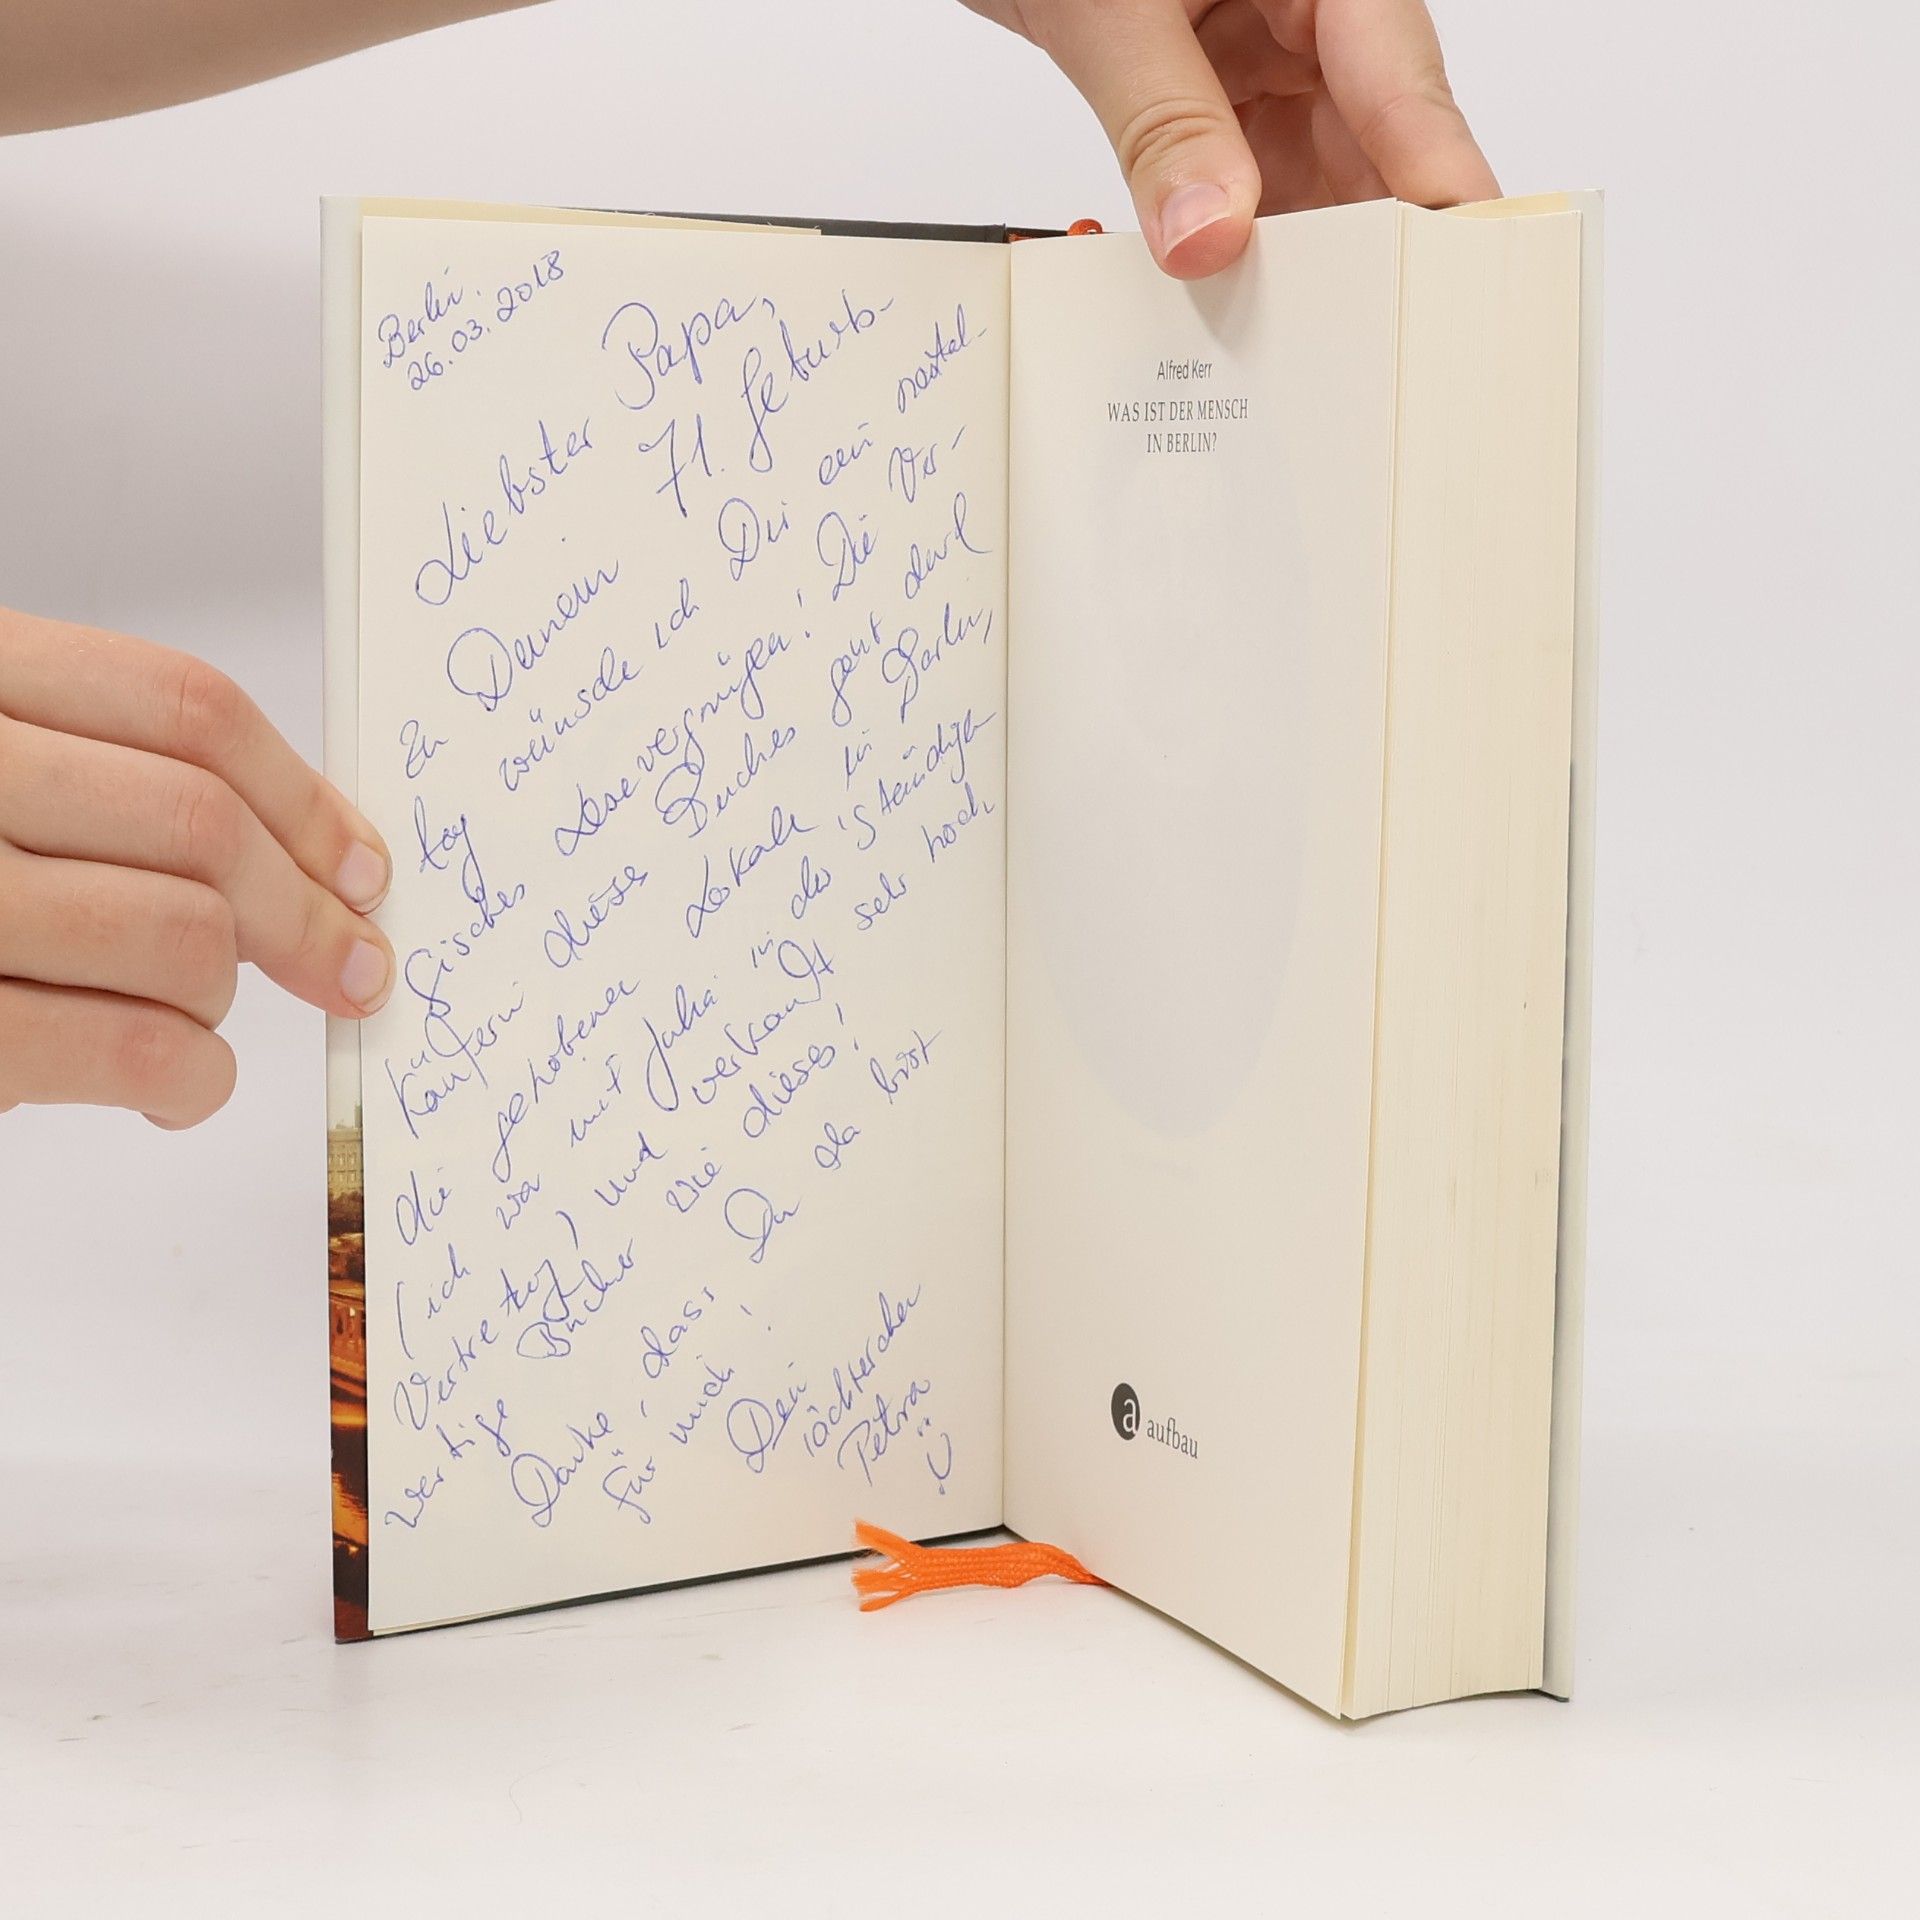 Berlin.
26.03.2018
Liebster Papa,
Zu Deinem 71. Geburts-
tag wünsche ich Dir ein nostal-
gisches Lesevergnügen! Die Ver-
käuferin dieses Buches geht durch
die gehobenen Lokale in Berlin,
(ich war mit Julia in der 'Ständigen
Vertretung) und verkauft sehr hoch
wertige Bücher wie dieses!
Danke, dass Du da bist
für mich!
Dein
Töchterchen
Petra
Alfred Kerr
WAS IST DER MENSCH
IN BERLIN?
a aufbau